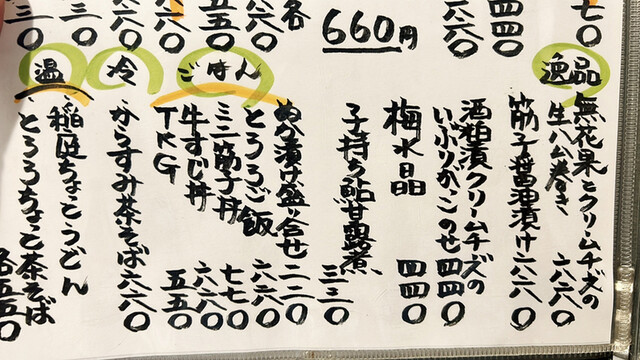 七〇
四四〇
六六〇
660円
各
六六〇
五五〇
三〇
三〇
逸品
無花果とクリームチーズの
生ハム巻き 六六〇
筋子醤油漬け 六六〇
酒粕漬クリームチーズの
いぶりがっこのせ 四四〇
梅水晶 四四〇
子持ち鮎甘露煮 三三〇
ぬか漬け盛り合せ 二二〇
ごはん
とろろご飯 六六〇
ミニ筋子丼 七七〇
牛すじ丼 六六〇
TKG 五五〇
冷
からすみ茶そば 六六〇
温
稲庭ちょっとうどん
とろろちょっと茶そば 各五五〇